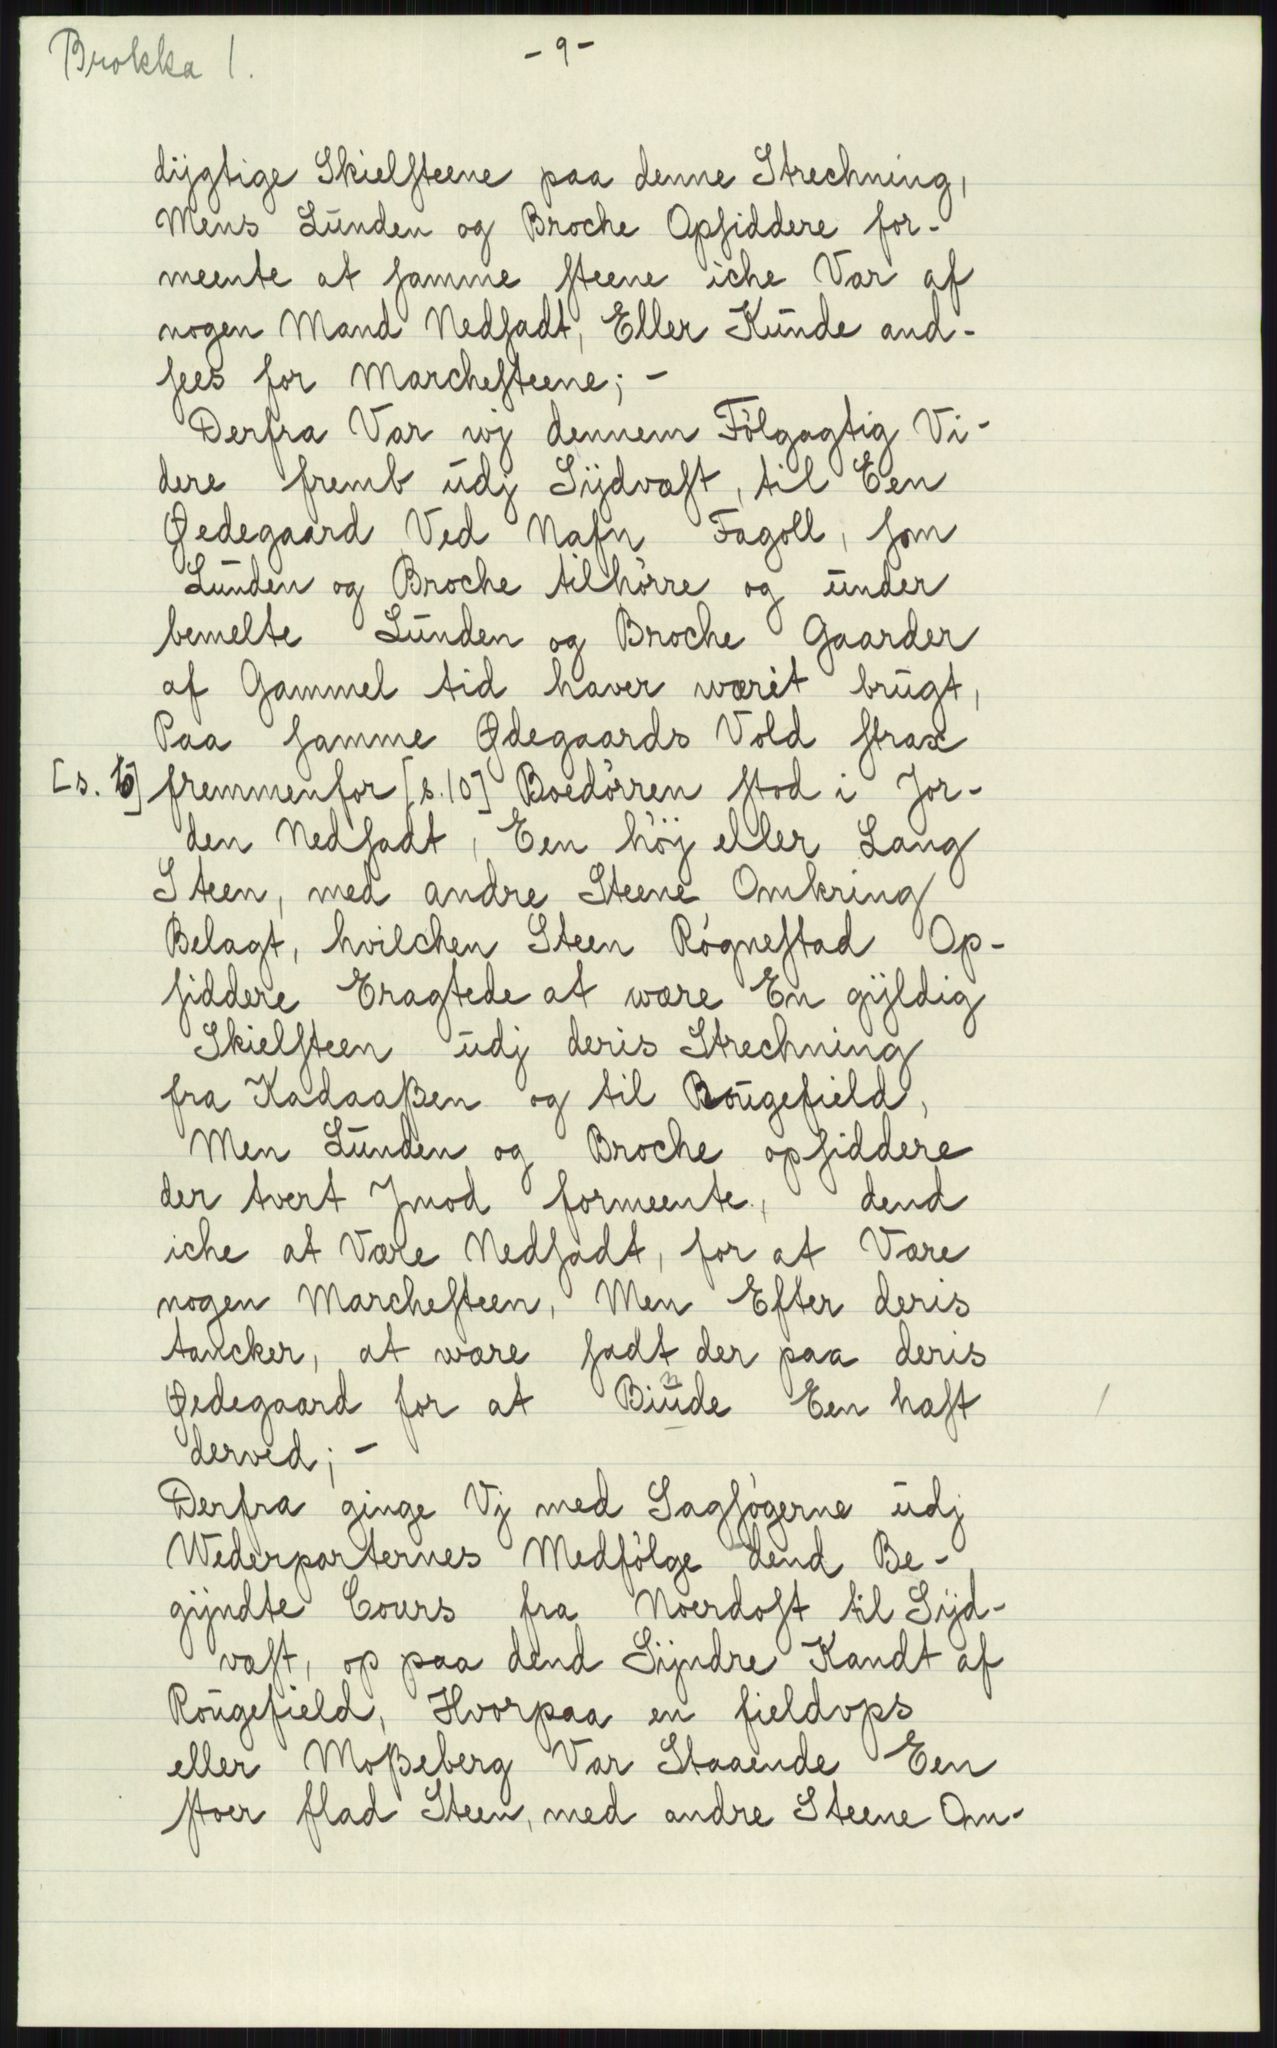 Brokka 1.
- 9 -
dÿgtige Skielsteene paa denne Strechning,
Mens Lunden og Broche Opsiddere for-
meente at samme steene iche Var af
nogen Mand Nedsadt, Eller Kunde and-
sees for Marchesteene; -
Derfra Var wj dennem Følgagtig Vi-
dere fremb udj Sÿdvæst, til Een
Øedegaard Ved Nafn Fagoll, som
Lunden og Broche tilhørre og under
bemelte Lunden og Broche Gaarder
af Gammel tid haver wærit brugt,
Paa samme Ødegaards Vold strax
[s. 10] fremmenfor [s. 10] Boedørren stod i Jor-
den Nedsadt, Een høÿ eller Lang
Steen, med andre Steene Omkring
Belagt, hvilchen Steen Røgnestad Op-
siddere Eragtede at wære En gÿldig
Skielsteen udj deris Strechning
fra Kadaaßen og til Rougefield,
Men Lunden og Broche opsiddere
der tvert Jmod formeente, dend
iche at Være Nedsadt, for at Være
nogen Marchesteen, Men Efter deris
tancker, at wære sadt der paa deris
Øedegaard for at Biude Een hæst
n
derved; -
Derfra ginge Vj med Sagsøgerne udj
Wederparternes Medfølge dend Be-
gÿndte Cours fra Noerdost til Sÿd-
væst, op paa dend Sÿndre Kandt af
Rougefield, Hvorpaa en fieldops
eller Moßeberg Var Staaende Een
stoer flad Steen, med andre Steene Om-